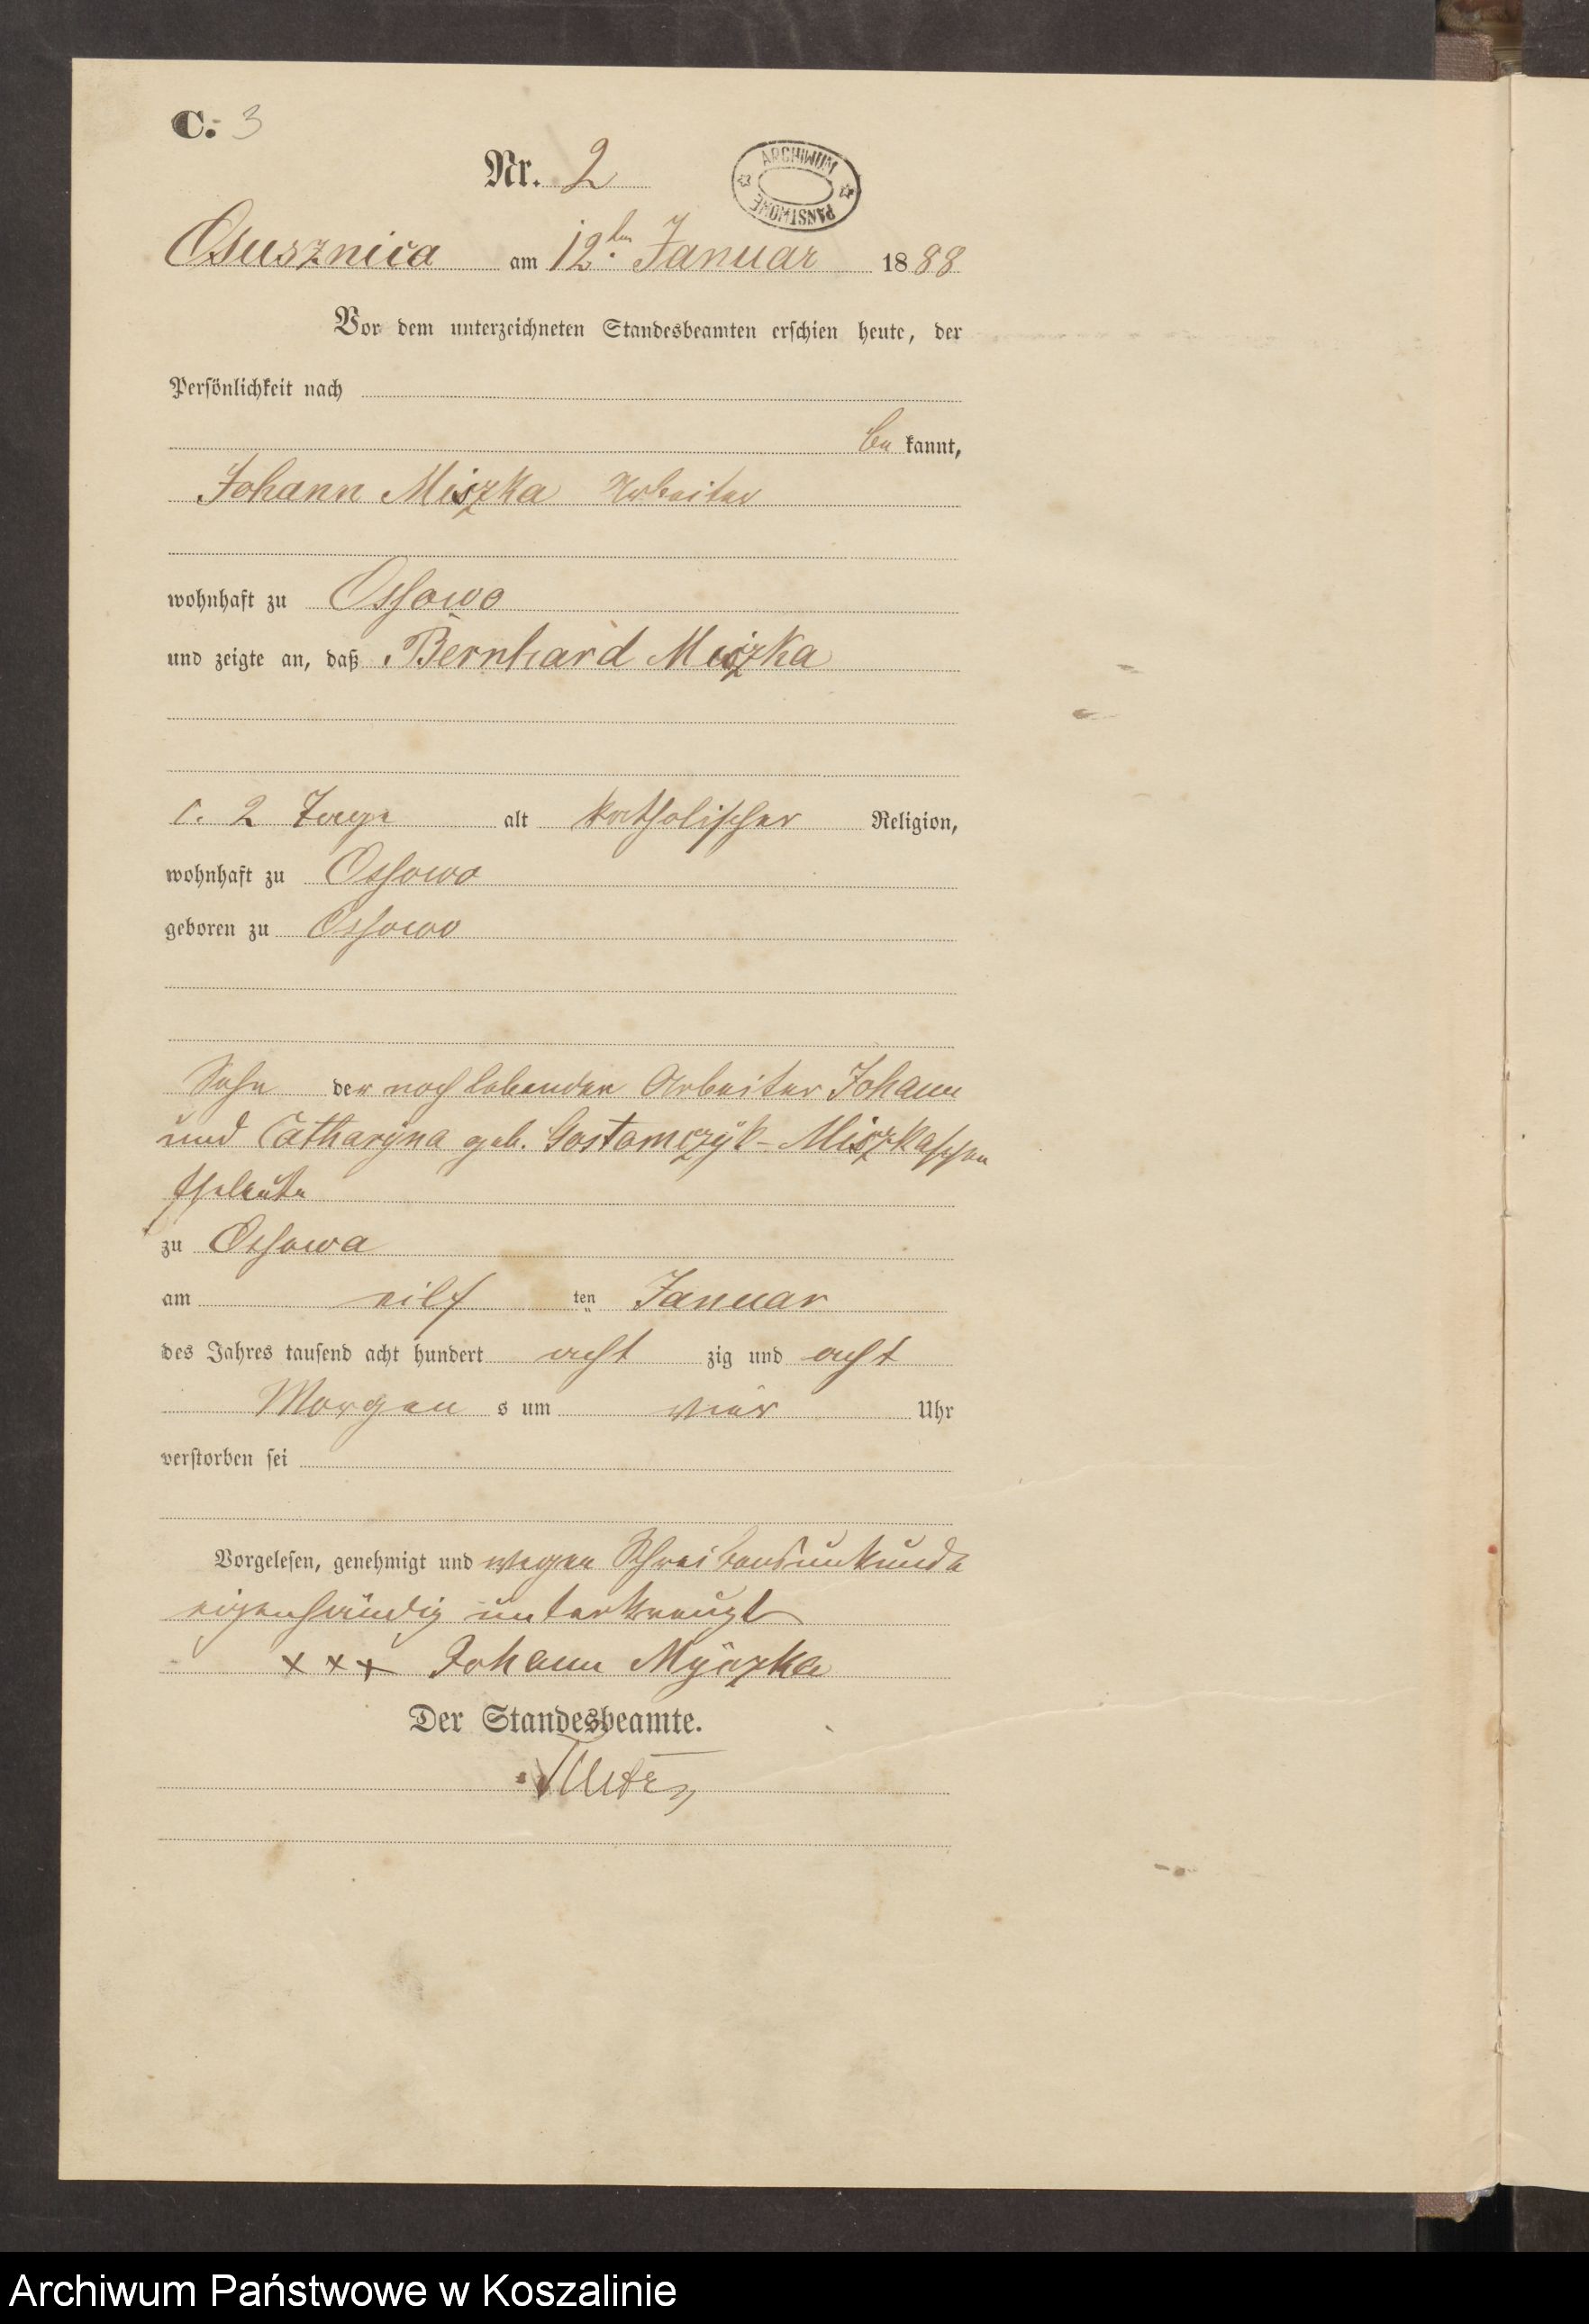 C. 3
Nr. 2
ARCHIWUM PAŃSTWOWE
Osusznica am 12ten Januar 1888
Vor dem unterzeichneten Standesbeamten erschien heute, der
Persönlichkeit nach
be kannt,
Johann Miszka Arbeiter
wohnhaft zu Ossowo
und zeigte an, daß Bernhard Miszka
c. 2 Tage alt katholischer Religion,
wohnhaft zu Ossowo
geboren zu Ossowo
Sohn der noch lebenden Arbeiter Johann
und Catharÿna geb. Gostomczÿk-Miszkaschen
Eheleute
zu Ossowa
am eilf ten Januar
des Jahres tausend acht hundert acht zig und acht
Morgen s um vier Uhr
verstorben sei
Vorgelesen, genehmigt und wegen Schreibensunkunde
eigenhändig unterkreuzt
xxx Johann Myszka
Der Standesbeamte.
Archiwum Państwowe w Koszalinie